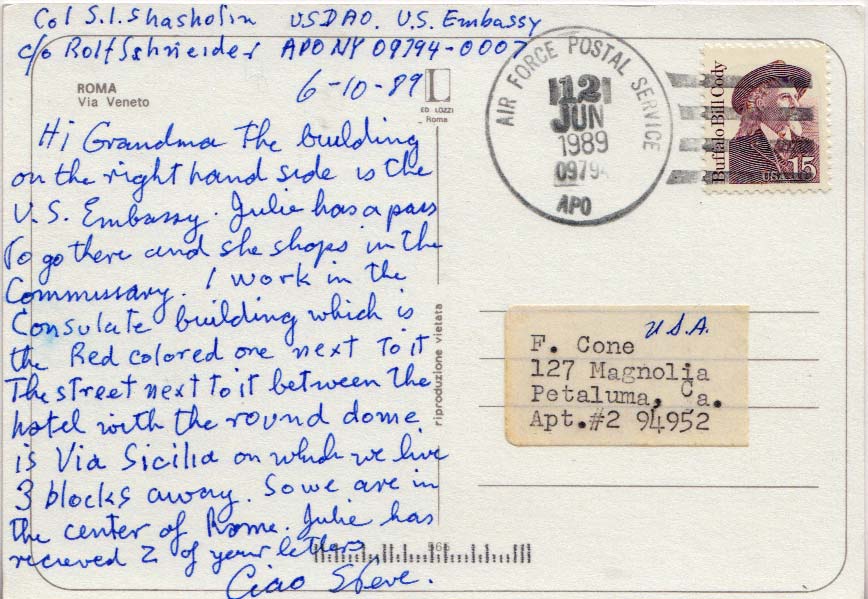 Col S.I. Shasholin USDAO. U.S. Embassy
c/o Rolf Schneider APO NY 09794-0007
6-10-89
ROMA
Via Veneto
ED. LOZZI
Roma
Hi Grandma The building
on the right hand side is the
U.S. Embassy. Julie has a pass
To go there and she shops in the
Commissary. I work in the
Consulate building which is
the Red colored one next to it
The street next to it between the
hotel with the round dome
is Via Sicilia on which we live
3 blocks away. So we are in
the center of Rome. Julie has
recieved 2 of your letters
Ciao Steve.
riproduzione vietata
566
AIR FORCE POSTAL SERVICE
12
JUN
1989
09794
APO
Buffalo Bill Cody
USA
15
U.S.A.
F. Cone
127 Magnolia
Petaluma, Ca.
Apt.#2 94952